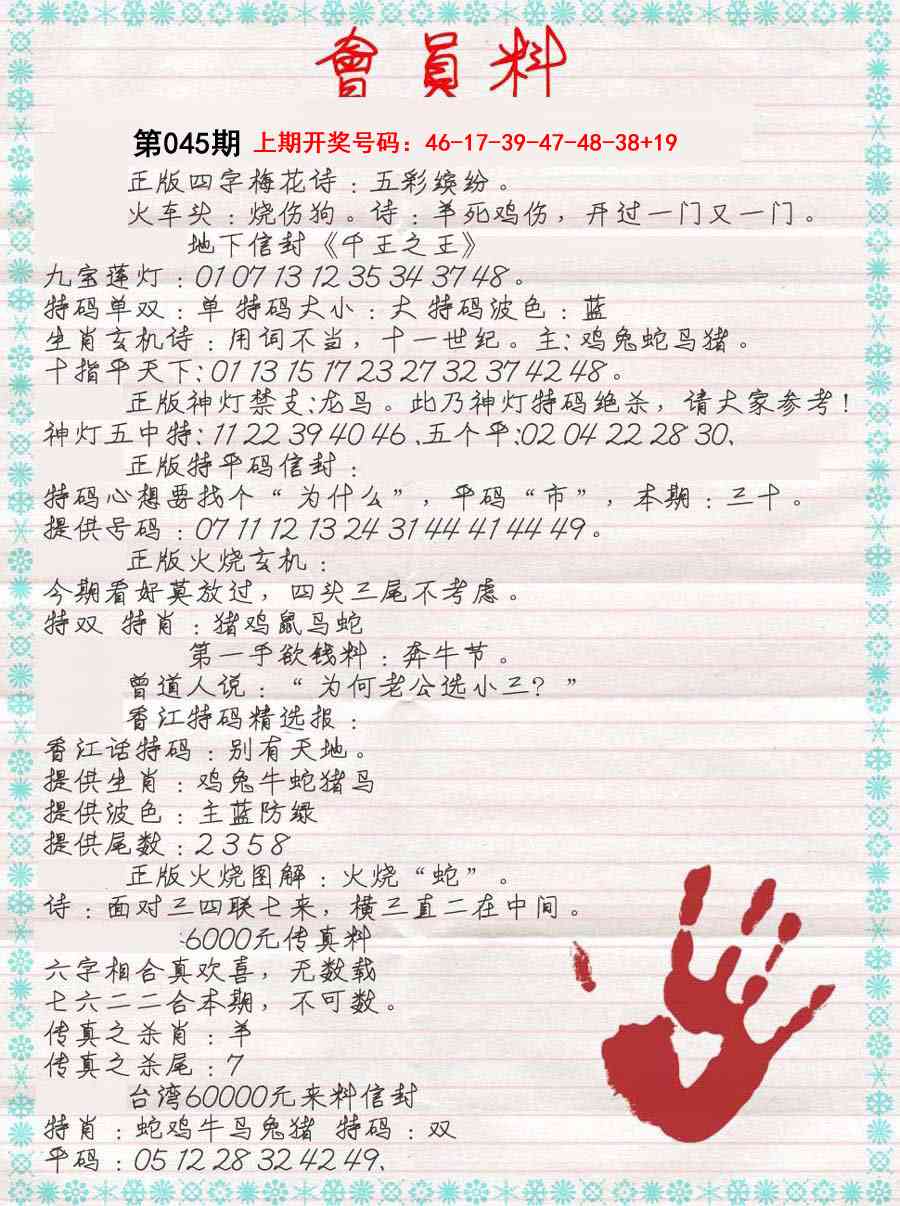 會員料
第045期 上期开奖号码：46-17-39-47-48-38+19
正版四字梅花诗：五彩缤纷。
火车头：烧伤狗。诗：羊死鸡伤，开过一门又一门。
地下信封《千王之王》
九宝莲灯：01 07 13 12 35 34 37 48。
特码单双：单 特码大小：大 特码波色：蓝
生肖玄机诗：用词不当，十一世纪。主：鸡兔蛇马猪。
十指平天下：01 13 15 17 23 27 32 37 42 48。
正版神灯禁支：龙马。此乃神灯特码绝杀，请大家参考！
神灯五中特：11 22 39 40 46、五个平：02 04 22 28 30、
正版特平码信封：
特码心想要找个“为什么”，平码“市”，本期：三十。
提供号码：07 11 12 13 24 31 44 41 44 49。
正版火烧玄机：
今期看好莫放过，四头三尾不考虑。
特双 特肖：猪鸡鼠马蛇
第一手欲钱料：奔牛节。
曾道人说：“为何老公选小三？”
香江特码精选报：
香江话特码：别有天地。
提供生肖：鸡兔牛蛇猪马
提供波色：主蓝防绿
提供尾数：2 3 5 8
正版火烧图解：火烧“蛇”。
诗：面对三四联七来，横三直二在中间。
:6000元传真料
六字相合真欢喜，无数载
七六二二合本期，不可数。
传真之杀肖：羊
传真之杀尾：7
台湾60000元来料信封
特肖：蛇鸡牛马兔猪 特码：双
平码：05 12 28 32 42 49、